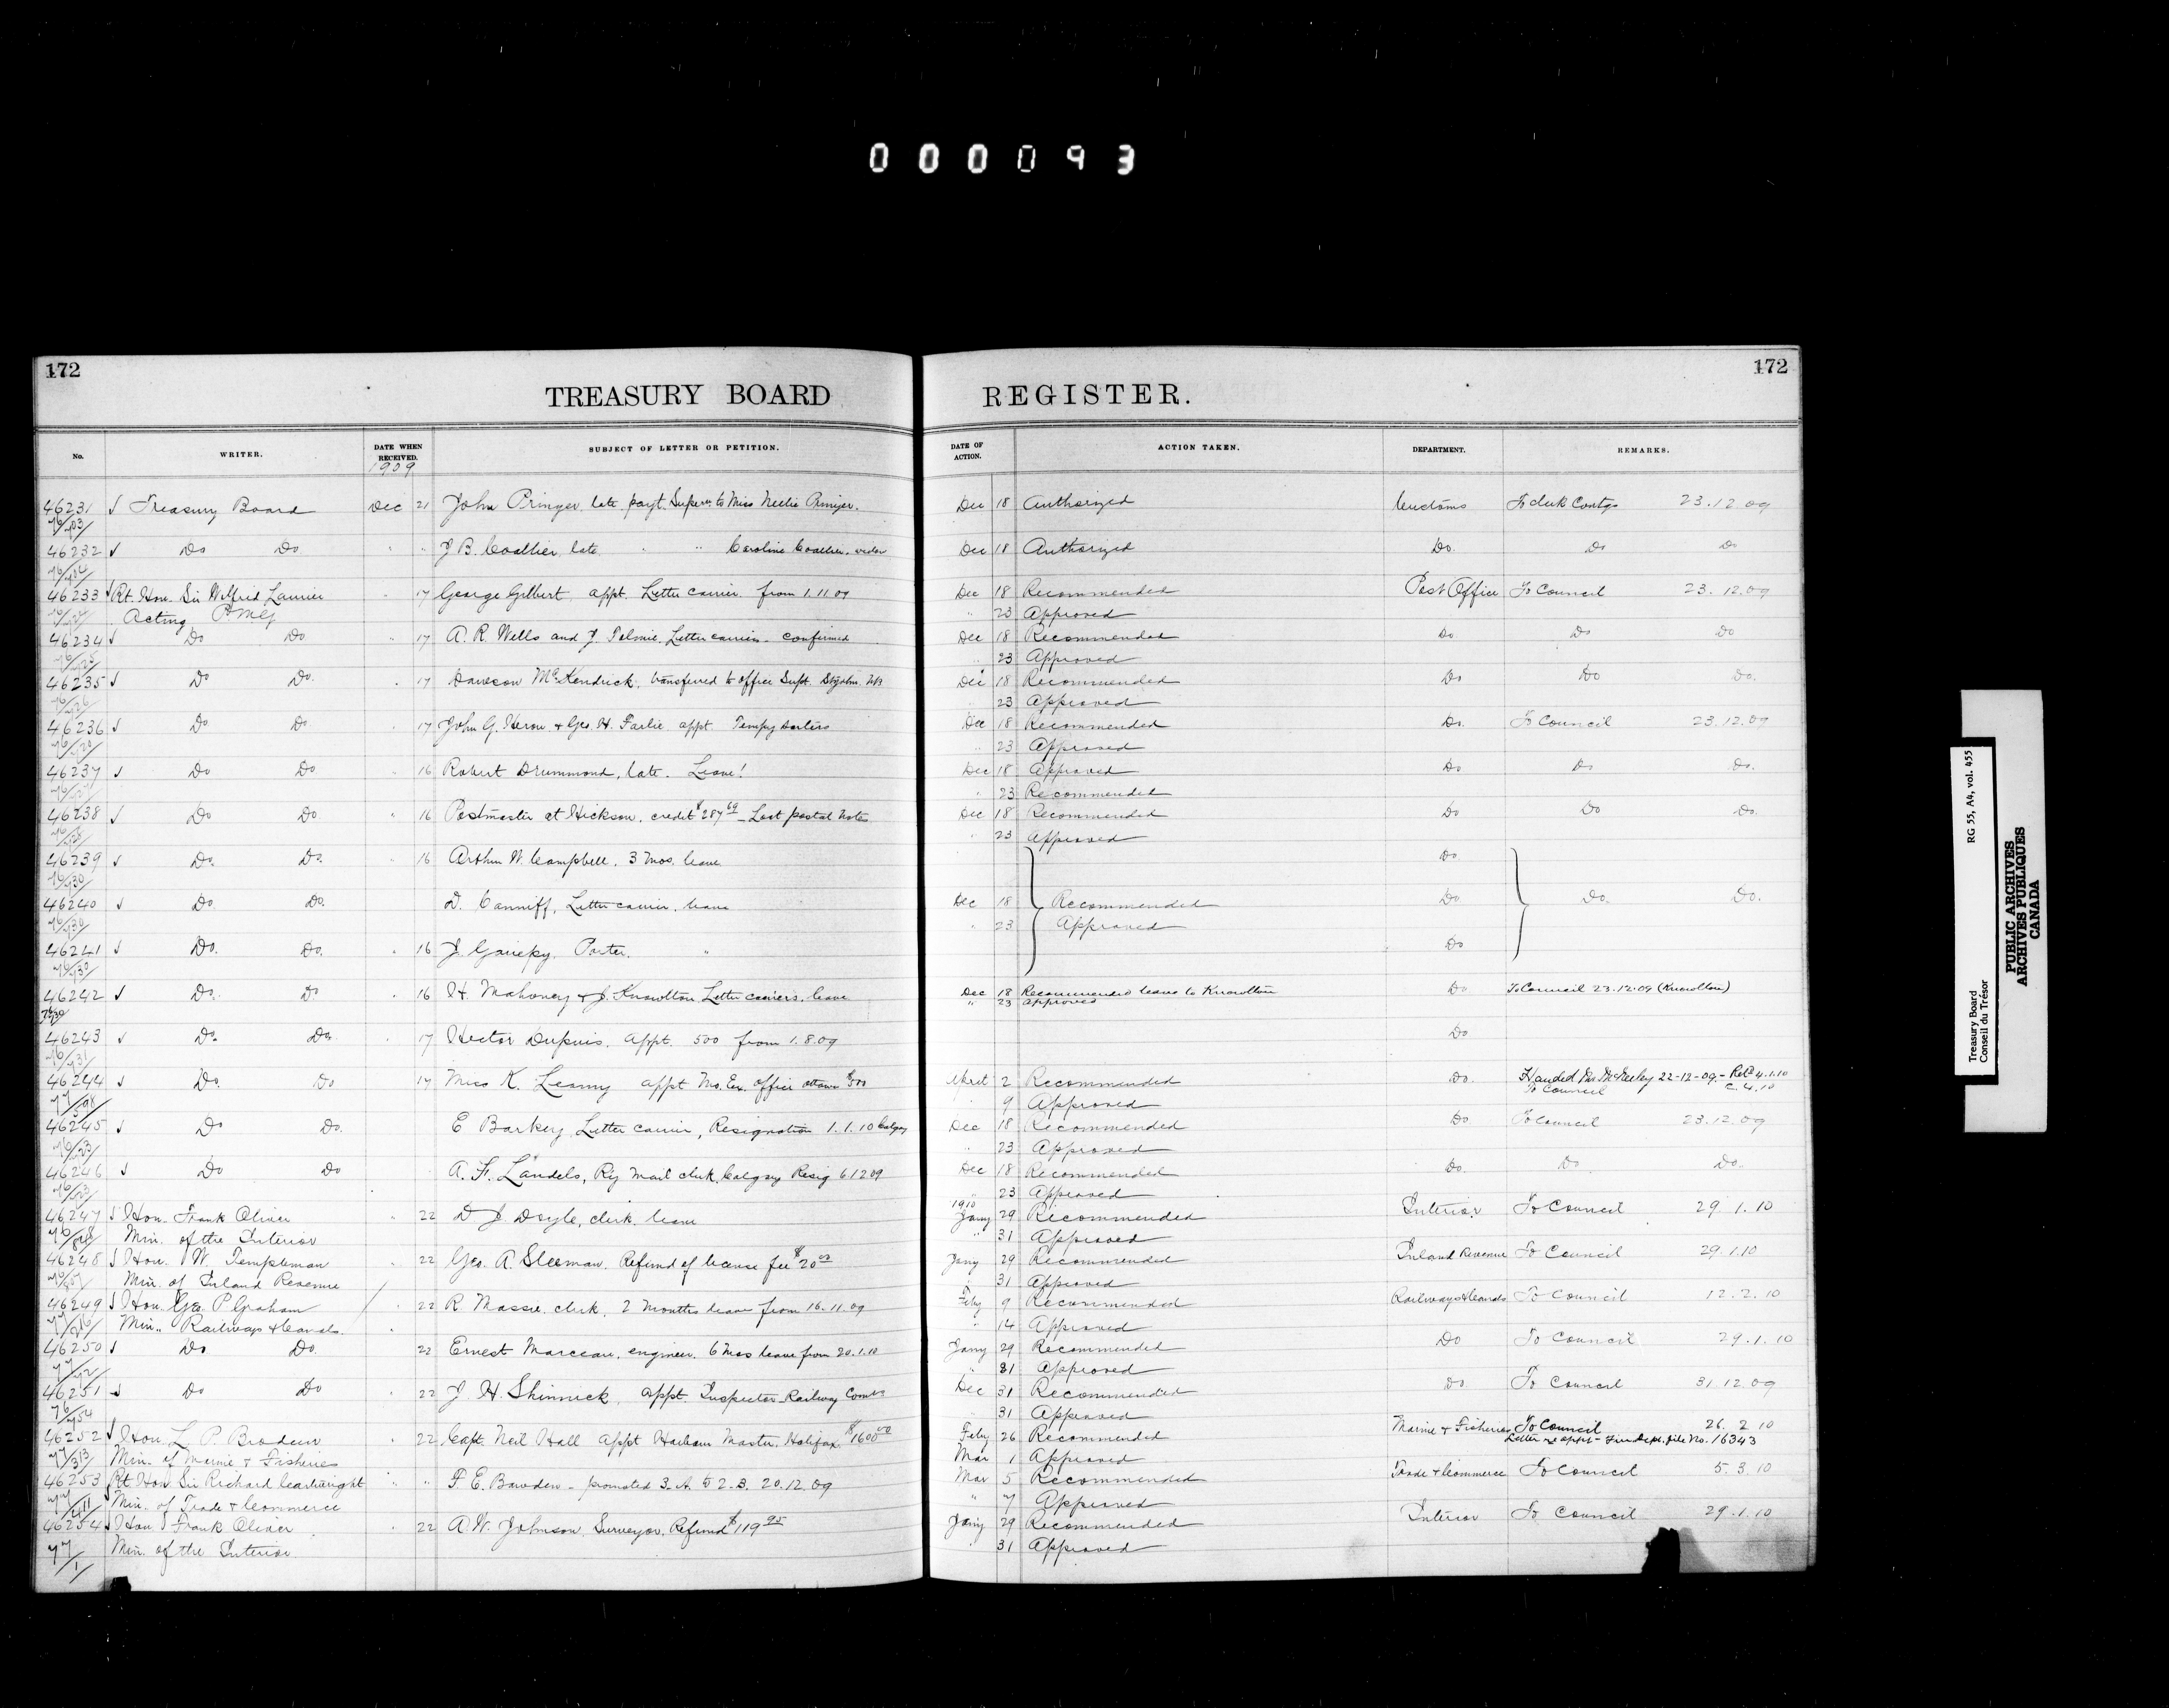 000093
172
172
TREASURY BOARD REGISTER.
No. WRITER. DATE WHEN RECEIVED. SUBJECT OF LETTER OR PETITION. DATE OF ACTION. ACTION TAKEN. DEPARTMENT. REMARKS.
1909
46231 Treasury Board Dec 21 John Pringer, late payt. Supern. to Miss Nellie Pringer. Dec 18 Authorized Customs To clerk Contgs 23.12.09
46232 Do Do " " J. B. Coallier, late " " Caroline Coallier, widow Dec 18 Authorized Do. Do Do
46233 Rt. Hon. Sir Wilfrid Laurier " 17 George Gilbert appt. Letter carrier from 1.11.09 Dec 18 Recommended Post Office To Council 23.12.09
Acting PMG " 23 Approved
46234 Do Do " 17 A. R. Wells and J. Letter carriers confirmed Dec 18 Recommended Do Do Do
76/725 " 23 Approved
46235 Do Do. " 17 McKendrick, transferred to office Supt. St John. NB Dec 18 Recommended Do Do Do.
76/726 " 23 Approved
46236 Do Do " 17 John G. Heron & Geo. H. Farlie appt Tempy sorters Dec 18 Recommended Do. To Council 23.12.09
" 23 Approved
46237 Do Do " 16 Robert Drummond, late. Leave! Dec 18 Approved Do Do Do.
" 23 Recommended
46238 Do Do " 16 Postmaster at Hickson, credit $287.69 - Lost postal note Dec 18 Recommended Do Do Do.
" 23 Approved
46239 Do. Do. " 16 Arthur W. Campbell, 3 mos. leave Do
76/730
46240 Do Do. D. Canniff, Letter carrier, leave Dec 18 Recommended Do Do. Do.
76/730 " 23 Approved
46241 Do. Do. " 16 J. Gariepy, Porter, " Do
76/730
46242 Do. Do " 16 H. Mahoney & J. Knowlton, Letter carriers, leave Dec 18 Recommended leave to Knowlton Do To Council 23.12.09 (Knowlton)
76/730 " 23 Approved
46243 Do. Do. " 17 Hector Dupuis, appt. 500 from 1.8.09 Do
76/731
46244 Do. Do " 17 Miss K. appt Mo. Ex. office Ottawa $500 2 Recommended Do. Handed Mr. 22-12-09 - Retd 4.1.10
To Council 2.4.10
77/598 9 Approved
46245 Do Do. E Barkey, Letter carrier, Resignation 1.1.10 Calgary Dec 18 Recommended Do To Council 23.12.09
76/723 " 23 Approved
46246 Do Do A. F. Landels, Ry mail clerk, Calgary Resig 6.12.09 Dec 18 Recommended Do. Do. Do.
76/723 23 Approved
46247 Hon. Frank Oliver " 22 D J Doyle, clerk. leave 1910 Jany 29 Recommended Interior To Council 29.1.10
Min. of the Interior " 31 Approved
46248 Hon. W. Templeman " 22 Geo. A. Sleeman. Refund of license fee $20.00 Jany 29 Recommended Inland Revenue To Council 29.1.10
Min. of Inland Revenue " 31 Approved
46249 Hon. Geo. P. Graham " 22 R. Massie, clerk, 2 months leave from 16.11.09 Feby 9 Recommended Railways & Canals To Council 12.2.10
Min.. Railways & Canals. " 14 Approved
46250 Do Do. 22 Ernest Marceau, engineer. 6 Mos leave from 20.1.10 Jany 29 Recommended Do To Council 29.1.10
77/2 " 31 Approved
46251 Do Do " 22 J. H. Shinnick, appt. Inspector Railway Comn Dec 31 Recommended Do To Council 31.12.09
76/754 31 Approved
46252 Hon L. P. Brodeur " 22 Capt. Neil Hall appt Harbour Master, Halifax $1600.00 Feby 26 Recommended Marine & Fisheries To Council 26.2.10
Letter re appt - Fin Dept. file No. 16343
77/313 Min. of Marine & Fisheries Mar 1 Approved
46253 Rt Hon. Sir Richard Cartwright " " F E. Bawden - promoted 3.A. to 2.B. 20.12.09 Mar 5 Recommended Trade & Commerce To Council 5.3.10
Min. of Trade & Commerce " 7 Approved
46254 Hon Frank Oliver " 22 A. W. Johnson, Surveyor, Refund $119.95 Jany 29 Recommended Interior To Council 29.1.10
77/1 Min. of the Interior 31 Approved
Treasury Board RG 55, A4, vol. 455
Conseil du Trésor
PUBLIC ARCHIVES
ARCHIVES PUBLIQUES
CANADA